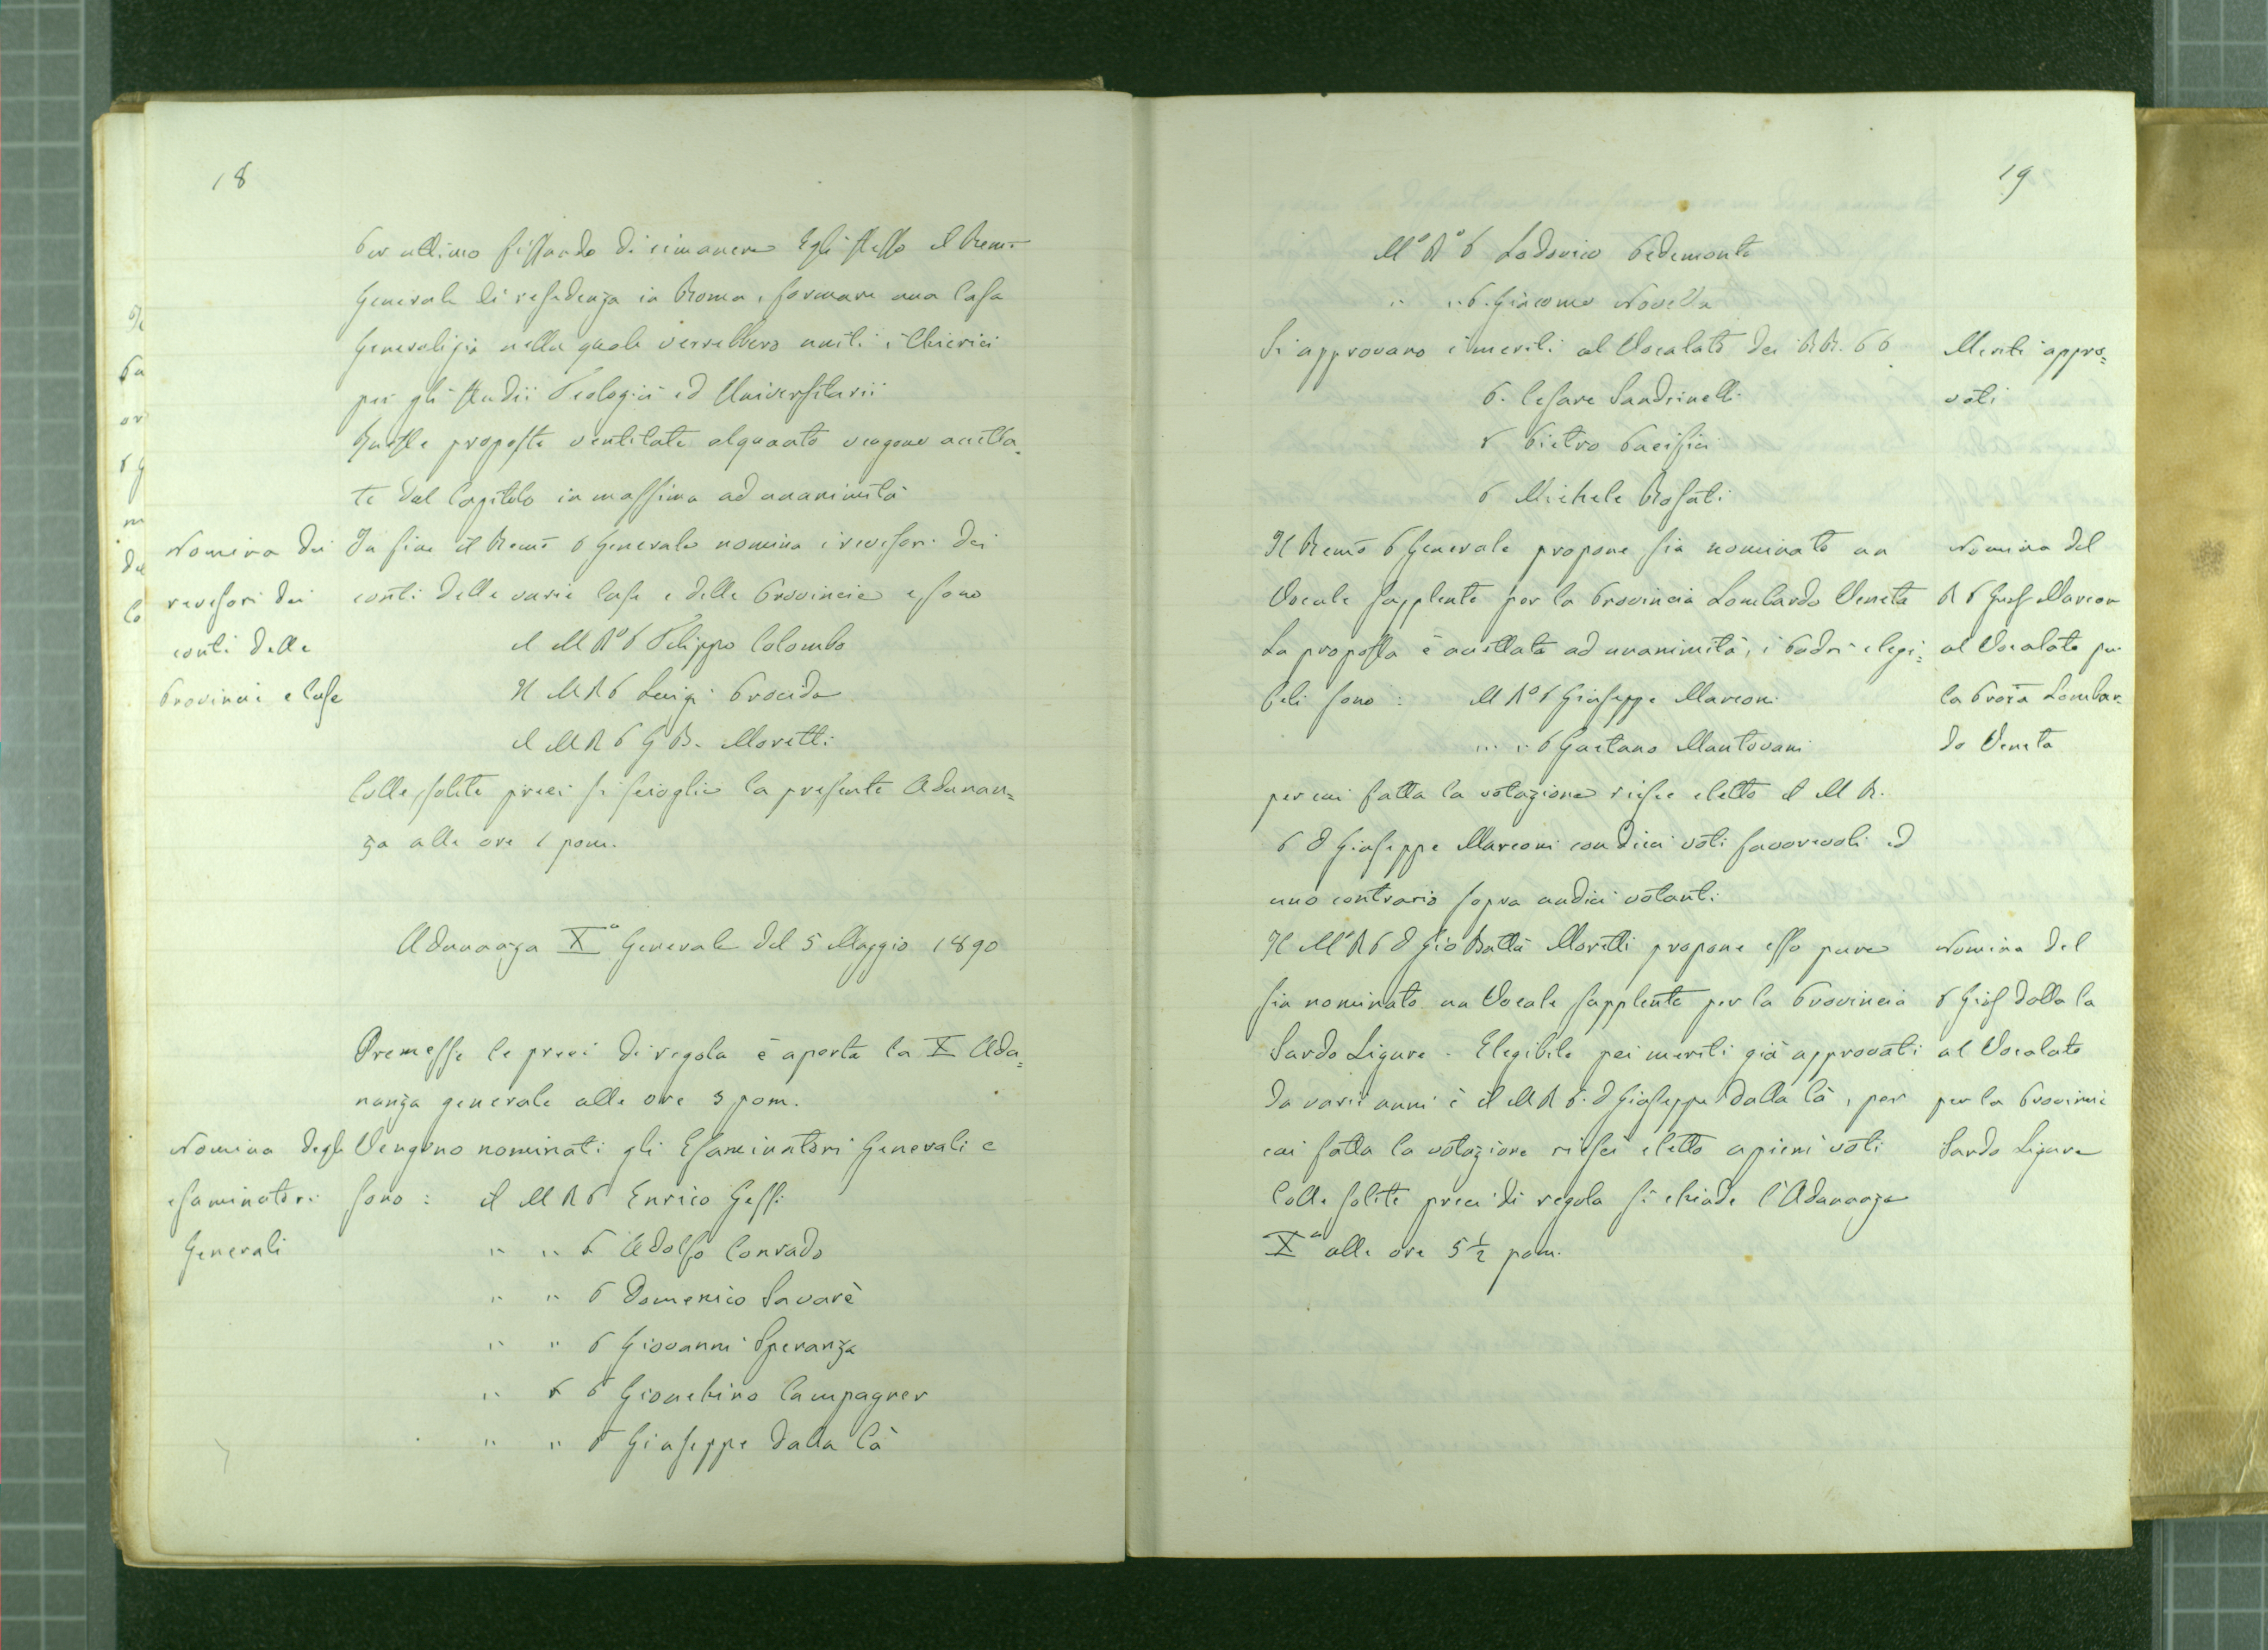 18
Per ultimo fissando di rimanere Egli stesso il Rem̄o
Generale di residenza in Roma, formare una Casa
Generalizia nella quale verrebbero uniti i Chierici
per gli studii Teologici ed Universitarii
Queste proposte ventilate alquanto vengono accetta=
te dal Capitolo in massima ad unanimità
Nomina dei
revisori dei
conti delle
Provincie e Case
In fine il Rem̄o P Generale nomina i revisori dei
conti delle varie Case e delle Provincie e sono
il M Rº P Filippo Colombo
Il M R P Luigi Procida
il M R P G B. Moretti
Colle solite preci si scioglie la presente Adunan=
za alle ore 1 pom.
Adunanza Xª Generale del 5 Maggio 1890
Premesse le preci di regola è aperta la X Adu=
nanza generale alle ore 3 pom.
Nomina degli
esaminatori
Generali
Vengono nominati gli Esaminatori Generali e
sono : il M R P Enrico Gessi
" " P Adolfo Conrado
" " P Domenico Savarè
" " P Giovanni Speranza
" " P Gioachino Campagner
" " P Giuseppe Dalla Cà
19
Mº Rº P Lodovico Pedemonte
" " P. Giacomo Novella
Si approvano i meriti al Vocalato dei RR. PP
P. Cesare Sandrinelli
P Pietro Pacifici
P Michele Rosati
Meriti appro=
vati
Il Rem̄o P Generale propone sia nominato un
Vocale supplente per la Provincia Lombardo Veneta
La proposta è accettata ad unanimità, i Padri elegi=
beli sono : M Rº P Giuseppe Marconi
" " P Gaetano Mantovani
per cui fatta la votazione riesce eletto il M R.
P D Giuseppe Marconi con dieci voti favorevoli ed
uno contrario sopra undici votanti
Nomina del
R P Gius Marcon
al Vocalato per
la Prov̄a Lombar=
do Veneta
Il Mº R P D Gio Batta Moretti propone esso pure
sia nominato un Vocale supplente per la Provincia
Sardo Ligure. Elegibile pei meriti già approvati
da varii anni è il M R P. D Giuseppe Dalla Cà, per
cui fatta la votazione riesci eletto a pieni voti
Colle solite preci di regola si chiude l'Adunanza
Xª alle ore 5 ½ pom.
Nomina del
P Gius Dalla Ca
al Vocalato
per la Provincie
Sardo Ligure